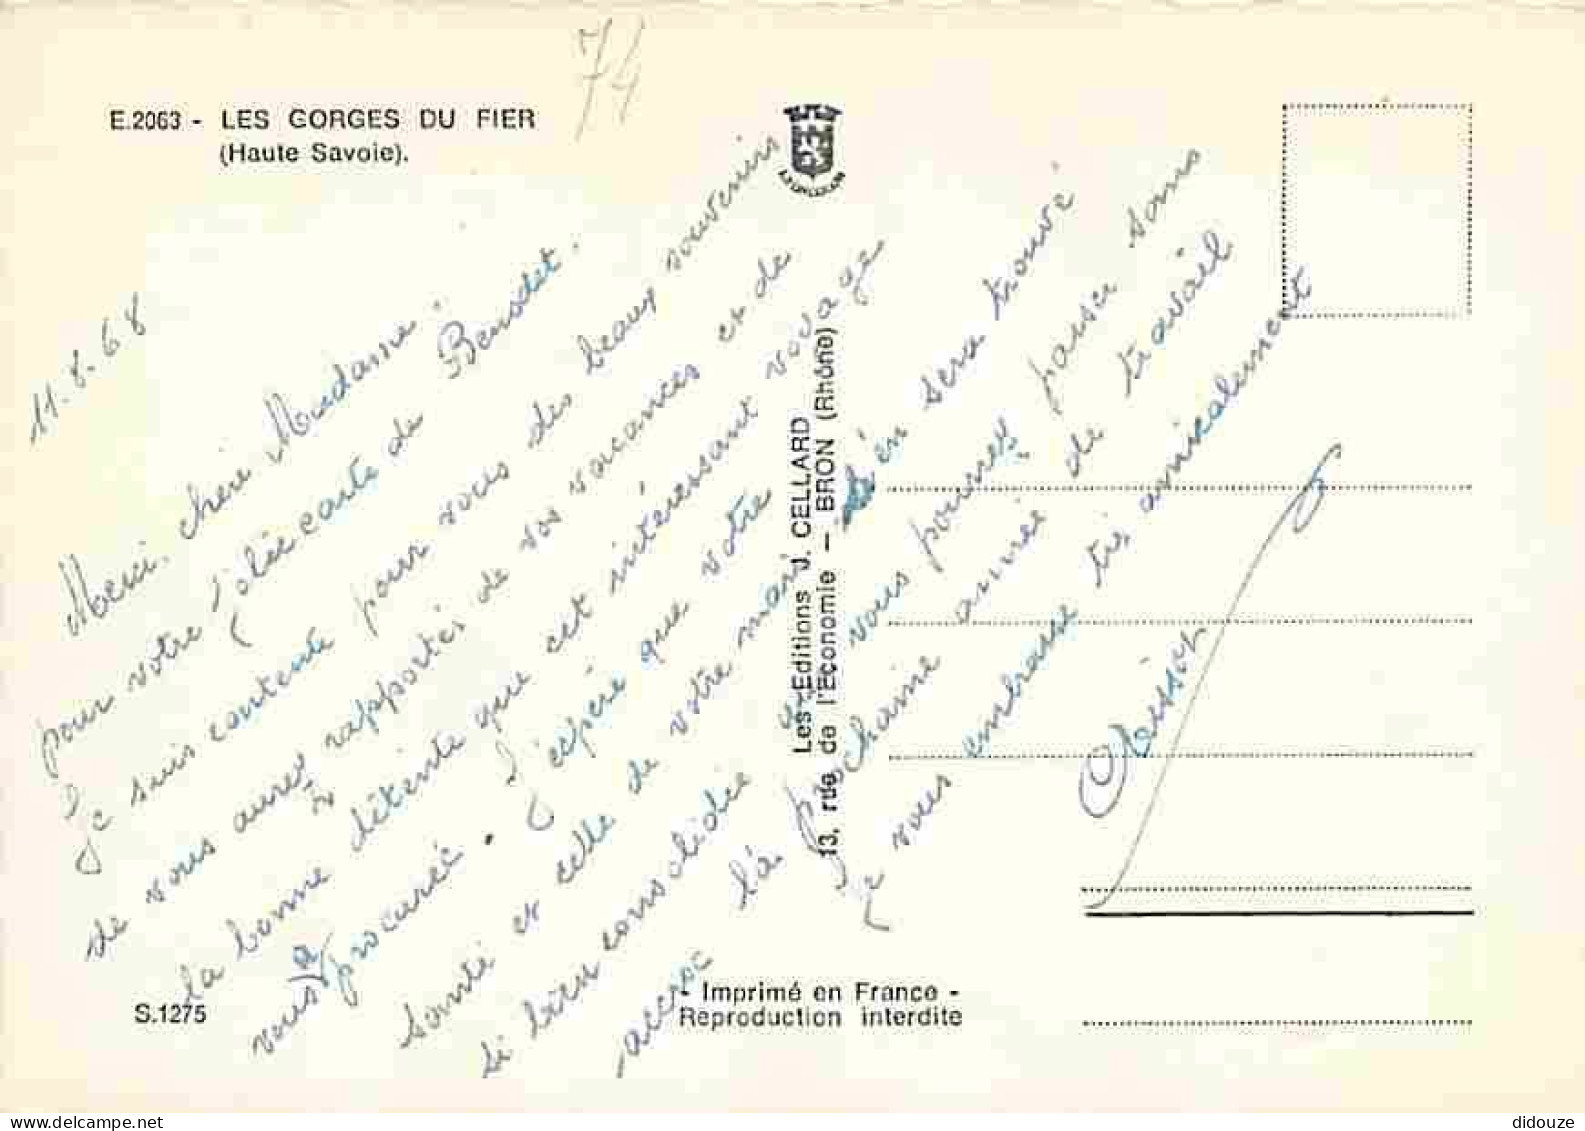 74
E.2063 - LES GORGES DU FIER
(Haute Savoie).
11.8.68
Merci, chère Madame,
pour votre jolie carte de Benodet.
Je suis contente pour vous des beaux souvenirs
de vous aurez rapportés de vos vacances et de
la bonne détente que cet intéressant voyage
vous a procurée. J'espère que votre
santé et celle de votre mari s'en sera trouvé
si bien consolidée que vous pourrez passer sans
accroc la prochaine année de travail
Je vous embrasse très amicalement
Les Editions J. CELLARD
13, rue de l'Economie — BRON (Rhône)
S.1275
- Imprimé en France -
Reproduction interdite
didouze